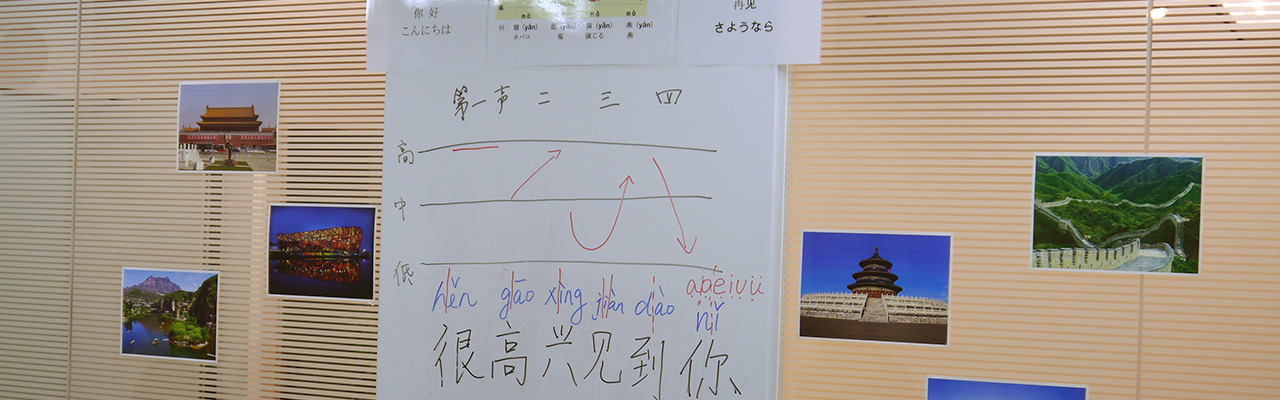 你好
こんにちは
mā mǎ mà
例: 烟 (yān) 盐 (yán) 演 (yǎn) 燕 (yàn)
タバコ 塩 演じる 燕
再见
さようなら
第一节 二 三 四
高
中
低
hěn gāo xìng jiàn dào nǐ
a o e i u ü
很高兴见到你